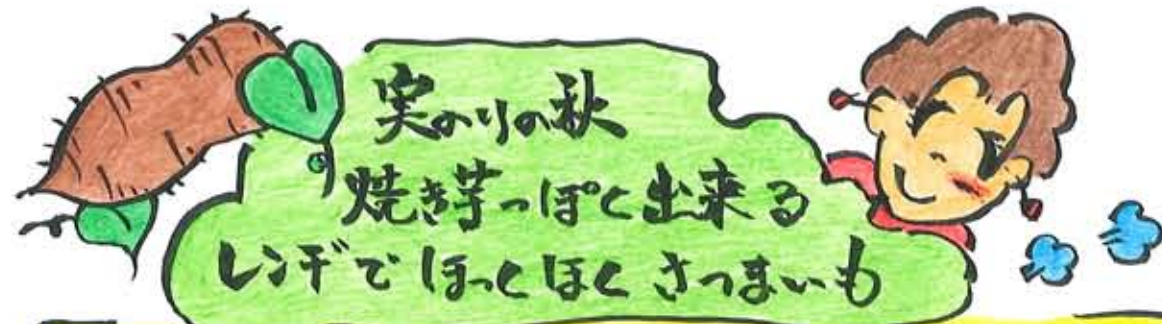 実のりの秋
焼き芋っぽく出来る
レンヂでほっくほくさつまいも